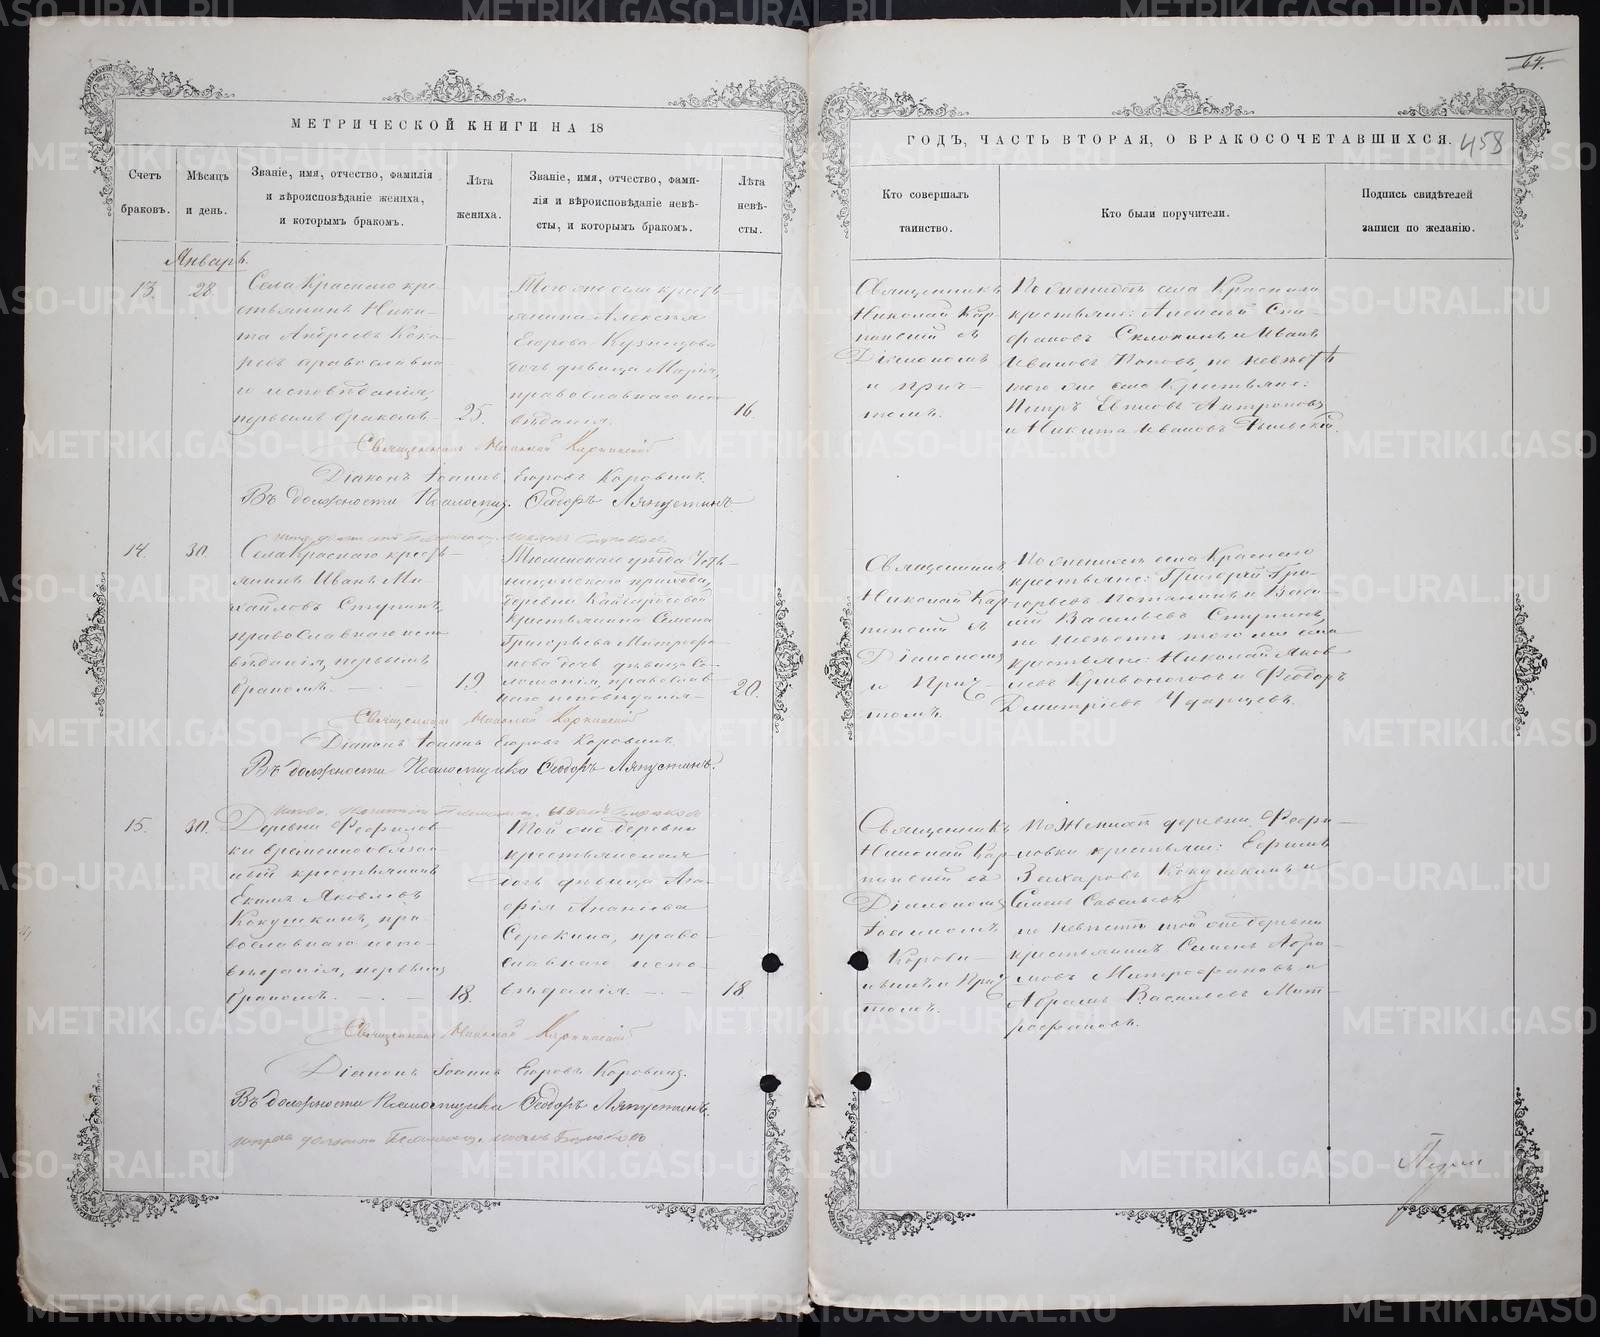 64.
МЕТРИЧЕСКОЙ КНИГИ НА 18
ГОДЪ, ЧАСТЬ ВТОРАЯ, О БРАКОСОЧЕТАВШИХСЯ.
458
Счетъ
браковъ.
Мѣсяцъ
и день.
Званіе, имя, отчество, фамилія
и вѣроисповѣданіе жениха,
и которымъ бракомъ.
Лѣта
жениха.
Званіе, имя, отчество, фами-
лія и вѣроисповѣданіе невѣ-
сты, и которымъ бракомъ.
Лѣта
невѣ-
сты.
Кто совершалъ
таинство.
Кто были поручители.
Подпись свидѣтелей
записи по желанію.
Январь.
13.
28
Села Краснаго кре-
стьянинъ Ники-
та Андреевъ Коко-
ревъ православна-
го исповѣданія,
первымъ бракомъ.
25.
Того же села кресть-
янина Алексѣя
Егорова Кузнецова
дочь дѣвица Марія,
православнаго испо-
вѣданія.
16.
Священникъ
Николай Кар-
пинскій съ
Діакономъ
и прич-
томъ.
По женихѣ села Краснаго
крестьяне: Алексѣй
и Иванъ
Ивановъ Поповъ, по невѣстѣ
того же села крестьяне:
Петръ Антроповъ
и Никита Ивановъ
Священникъ Николай Карпинскій
Діаконъ Іоаннъ Егоровъ Коровинъ.
Въ должности Псаломщ. Ѳеодоръ Ляпустинъ
14.
30.
Села Краснаго кресть-
янинъ Иванъ Ми-
хайловъ Ступинъ,
православнаго испо-
вѣданія, первымъ
бракомъ.
19.
Тюменскаго уѣзда
прихода,
деревни Кайгородовой
крестьянина Семена
Григорьева Митрофа-
нова дочь дѣвица Со-
ломонія, православ-
наго исповѣданія
20.
Священникъ
Николай Кар-
пинскій съ
Діакономъ
и Прич-
томъ.
По женихѣ села Краснаго
крестьяне: Григорій Гри-
горьевъ Потанинъ и Васи-
лій Васильевъ Ступинъ,
по невѣстѣ того же села
крестьяне: Николай Яков-
левъ Кривоноговъ и Ѳеодоръ
Дмитріевъ Ударцевъ.
Священникъ Николай Карпинскій
Діаконъ Іоаннъ Егоровъ Коровинъ.
Въ должности Псаломщика Ѳеодоръ Ляпустинъ.
15.
30.
Деревни Ѳефилов-
ки временнообязан-
ный крестьянинъ
Екимъ Яковлевъ
Кокушкинъ, пра-
вославнаго испо-
вѣданія, первымъ
бракомъ.
18.
Той же деревни
крестьянская
дочь дѣвица Ага-
фія Ананіева
Сорокина, право-
славнаго испо-
вѣданія.
18
Священникъ
Николай Кар-
пинскій съ
Діакономъ
Іоанномъ
Корови-
нымъ и Прич-
томъ.
По женихѣ деревни Ѳефи-
ловки крестьяне: Ефимъ
Захаровъ Кокушкинъ и
Семенъ Савельевъ
по невѣстѣ той же деревни
крестьянинъ Семенъ Абра-
мовъ Митрофановъ и
Абрамъ Васильевъ Мит-
рофановъ.
Священникъ Николай Карпинскій
Діаконъ Іоаннъ Егоровъ Коровинъ.
Въ должности Псаломщика Ѳеодоръ Ляпустинъ.
METRIKI.GASO-URAL.RU